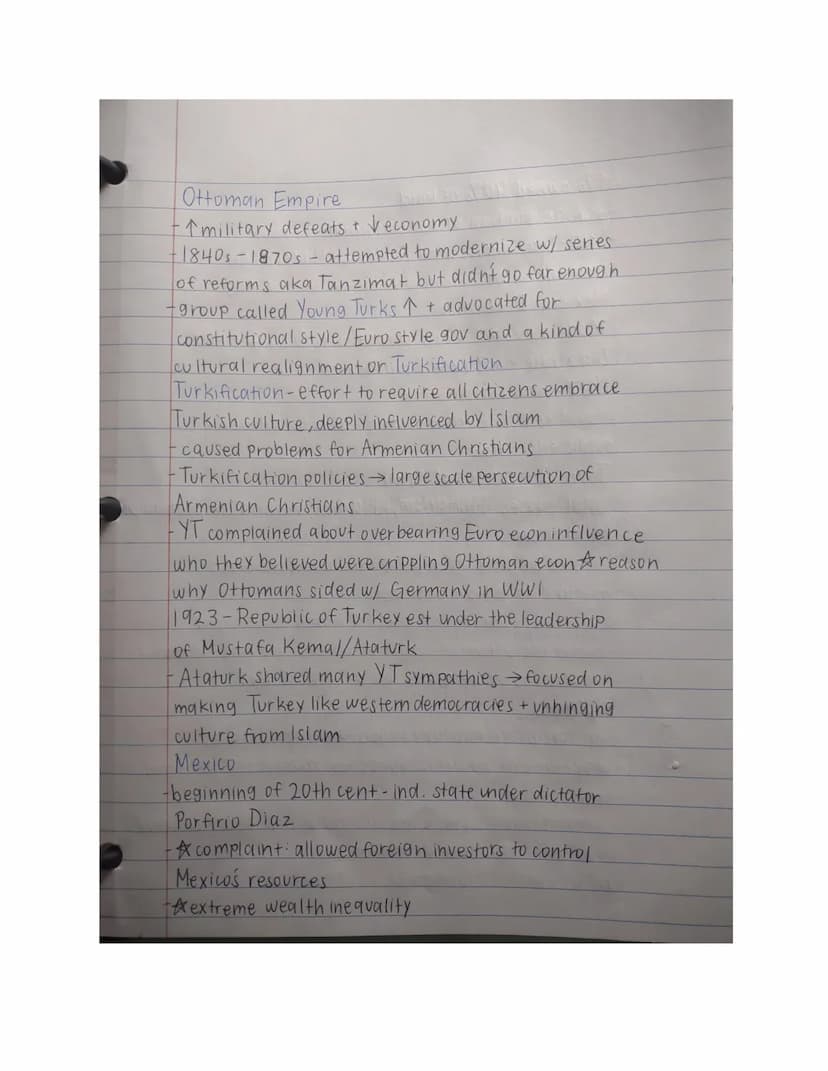 Ottoman Empire
- ↑ military defeats + ↓ economy
- 1840s - 1870s - attempted to modernize w/ series
of reforms aka Tanzimat but didn't go far enough
- group called Young Turks ↑ + advocated for
constitutional style/Euro style gov and a kind of
cultural realignment or Turkification
Turkification - effort to require all citizens embrace
Turkish culture, deeply influenced by Islam
- caused problems for Armenian Christians
- Turkification policies → large scale persecution of
Armenian Christians
- YT complained about overbearing Euro econ influence
who they believed were crippling Ottoman econ ☆ reason
why Ottomans sided w/ Germany in WWI
1923 - Republic of Turkey est under the leadership
of Mustafa Kemal//Ataturk
- Ataturk shared many YT sympathies → focused on
making Turkey like western democracies + unhinging
culture from Islam
Mexico
- beginning of 20th cent - ind. state under dictator
Porfirio Diaz
- ☆ complaint: allowed foreign investors to control
Mexico's resources
- ☆ extreme wealth inequality